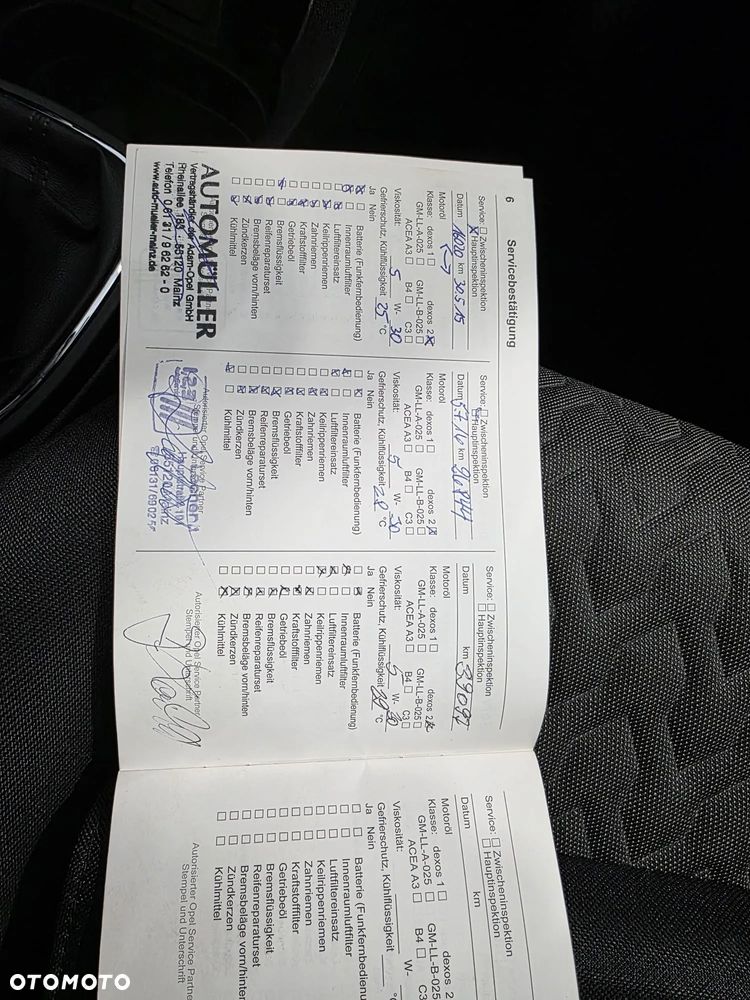 6 Servicebestätigung
Service: ☐ Zwischeninspektion
☒ Hauptinspektion
Datum km 30.5.15
Motoröl
Klasse: dexos 1 ☐ dexos 2 ☒
GM-LL-A-025 ☐ GM-LL-B-025 ☐
ACEA A3 ☐ B4 ☐ C3 ☐
Viskosität: 5 W- 30
Gefrierschutz, Kühlflüssigkeit 25 °C
Ja Nein
Batterie (Funkfernbedienung)
Innenraumluftfilter
Luftfiltereinsatz
Keilrippenriemen
Zahnriemen
Kraftstofffilter
Getriebeöl
Bremsflüssigkeit
Reifenreparaturset
Bremsbeläge vorn/hinten
Zündkerzen
Kühlmittel
AUTOMÜLLER
Vertragshändler der Adam-Opel GmbH
Rheinallee 183 · 55120 Mainz
Telefon 06131/96282-0
www.auto-mueller-mainz.de
Service: ☐ Zwischeninspektion
☒ Hauptinspektion
Datum 5.7.16 km
Motoröl
Klasse: dexos 1 ☐ dexos 2 ☒
GM-LL-A-025 ☐ GM-LL-B-025 ☐
ACEA A3 ☐ B4 ☐ C3 ☐
Viskosität: 5 W- 30
Gefrierschutz, Kühlflüssigkeit -28 °C
Ja Nein
Batterie (Funkfernbedienung)
Innenraumluftfilter
Luftfiltereinsatz
Keilrippenriemen
Zahnriemen
Kraftstofffilter
Getriebeöl
Bremsflüssigkeit
Reifenreparaturset
Bremsbeläge vorn/hinten
Zündkerzen
Kühlmittel
Autorisierter Opel Service Partner
Service: ☐ Zwischeninspektion
☐ Hauptinspektion
Datum km 39097
Motoröl
Klasse: dexos 1 ☐ dexos 2 ☒
GM-LL-A-025 ☐ GM-LL-B-025 ☐
ACEA A3 ☐ B4 ☐ C3 ☐
Viskosität: 5 W- 30
Gefrierschutz, Kühlflüssigkeit °C
Ja Nein
Batterie (Funkfernbedienung)
Innenraumluftfilter
Luftfiltereinsatz
Keilrippenriemen
Zahnriemen
Kraftstofffilter
Getriebeöl
Bremsflüssigkeit
Reifenreparaturset
Bremsbeläge vorn/hinten
Zündkerzen
Kühlmittel
Autorisierter Opel Service Partner
Stempel und Unterschrift
Service: ☐ Zwischeninspektion
☐ Hauptinspektion
Datum km
Motoröl
Klasse: dexos 1 ☐ dexos 2
GM-LL-A-025 ☐ GM-LL-B-025
ACEA A3 ☐ B4 ☐
Viskosität: W-
Gefrierschutz, Kühlflüssigkeit
Ja Nein
Batterie (Funkfernbedienun
Innenraumluftfilter
Luftfiltereinsatz
Keilrippenriemen
Zahnriemen
Kraftstofffilter
Getriebeöl
Bremsflüssigkeit
Reifenreparaturset
Bremsbeläge vorn/hinten
Zündkerzen
Kühlmittel
Autorisierter Opel Service Partner
Stempel und Unterschrift
OTOMOTO